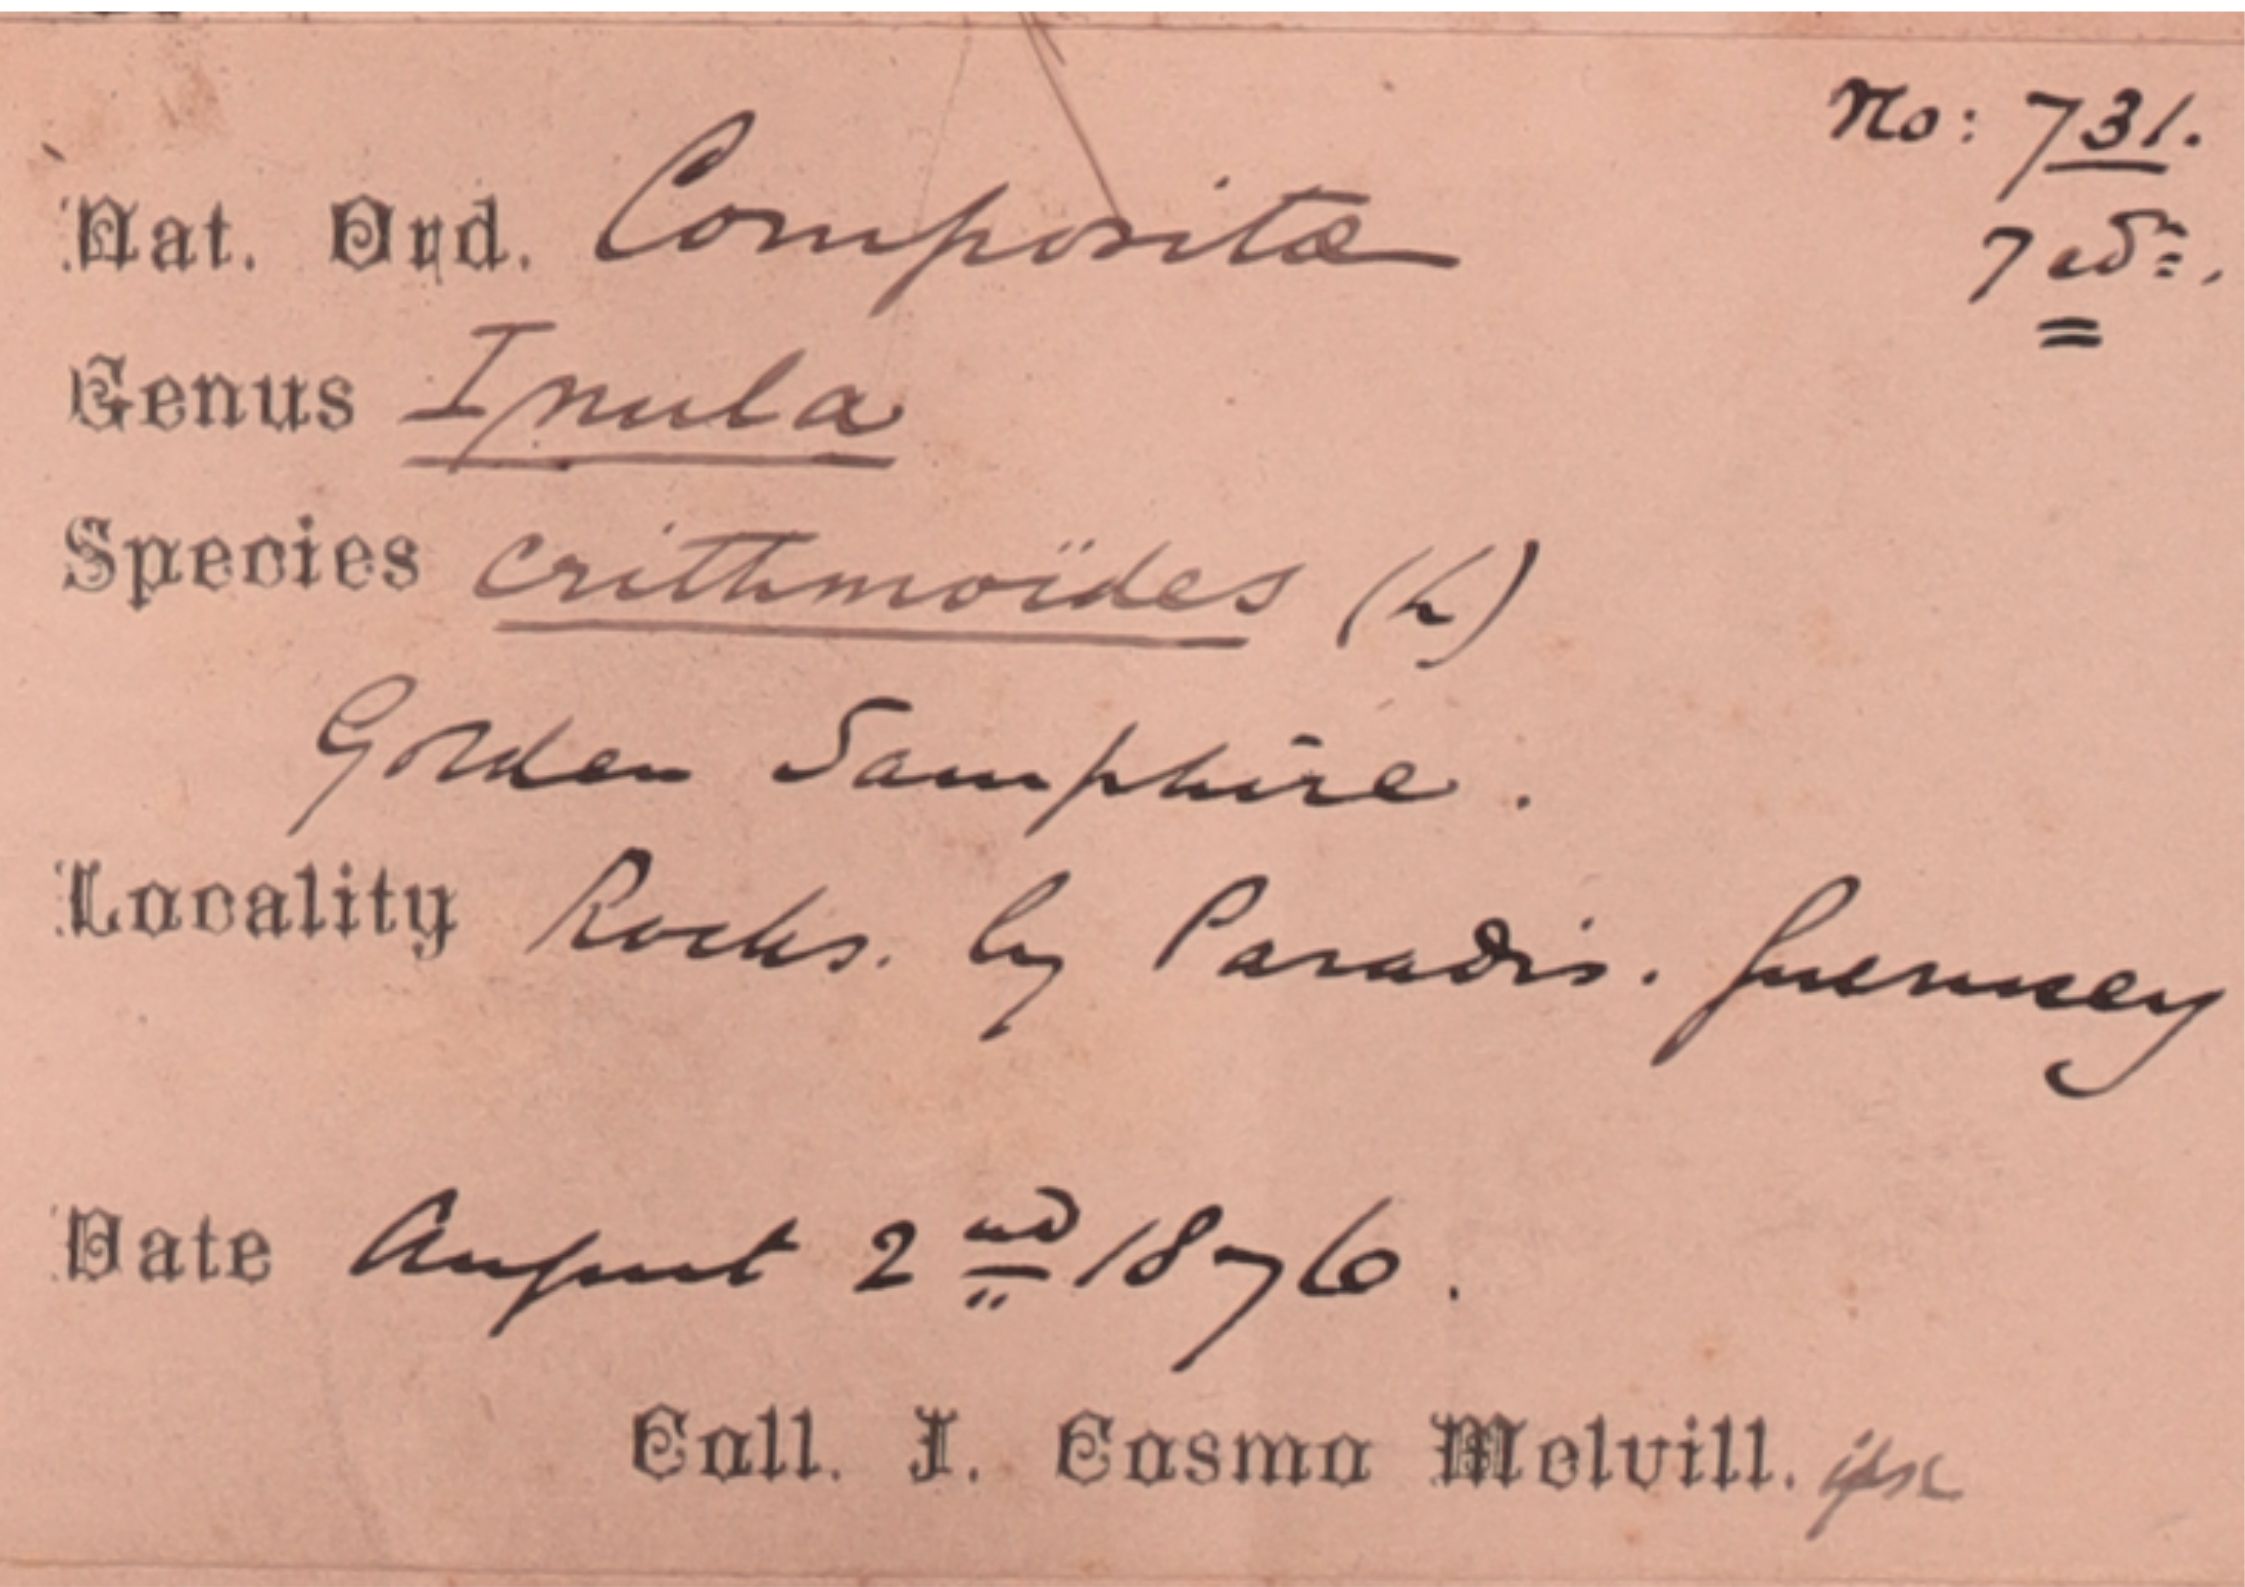 No: 731.
7 edn.
Nat. Ord. Compositæ
Genus Inula
Species crithmoïdes (L)
Golden Samphire.
Locality Rocks. by Paradis. Guernsey
Date August 2nd 1876.
Coll. J. Cosmo Melvill. ipse